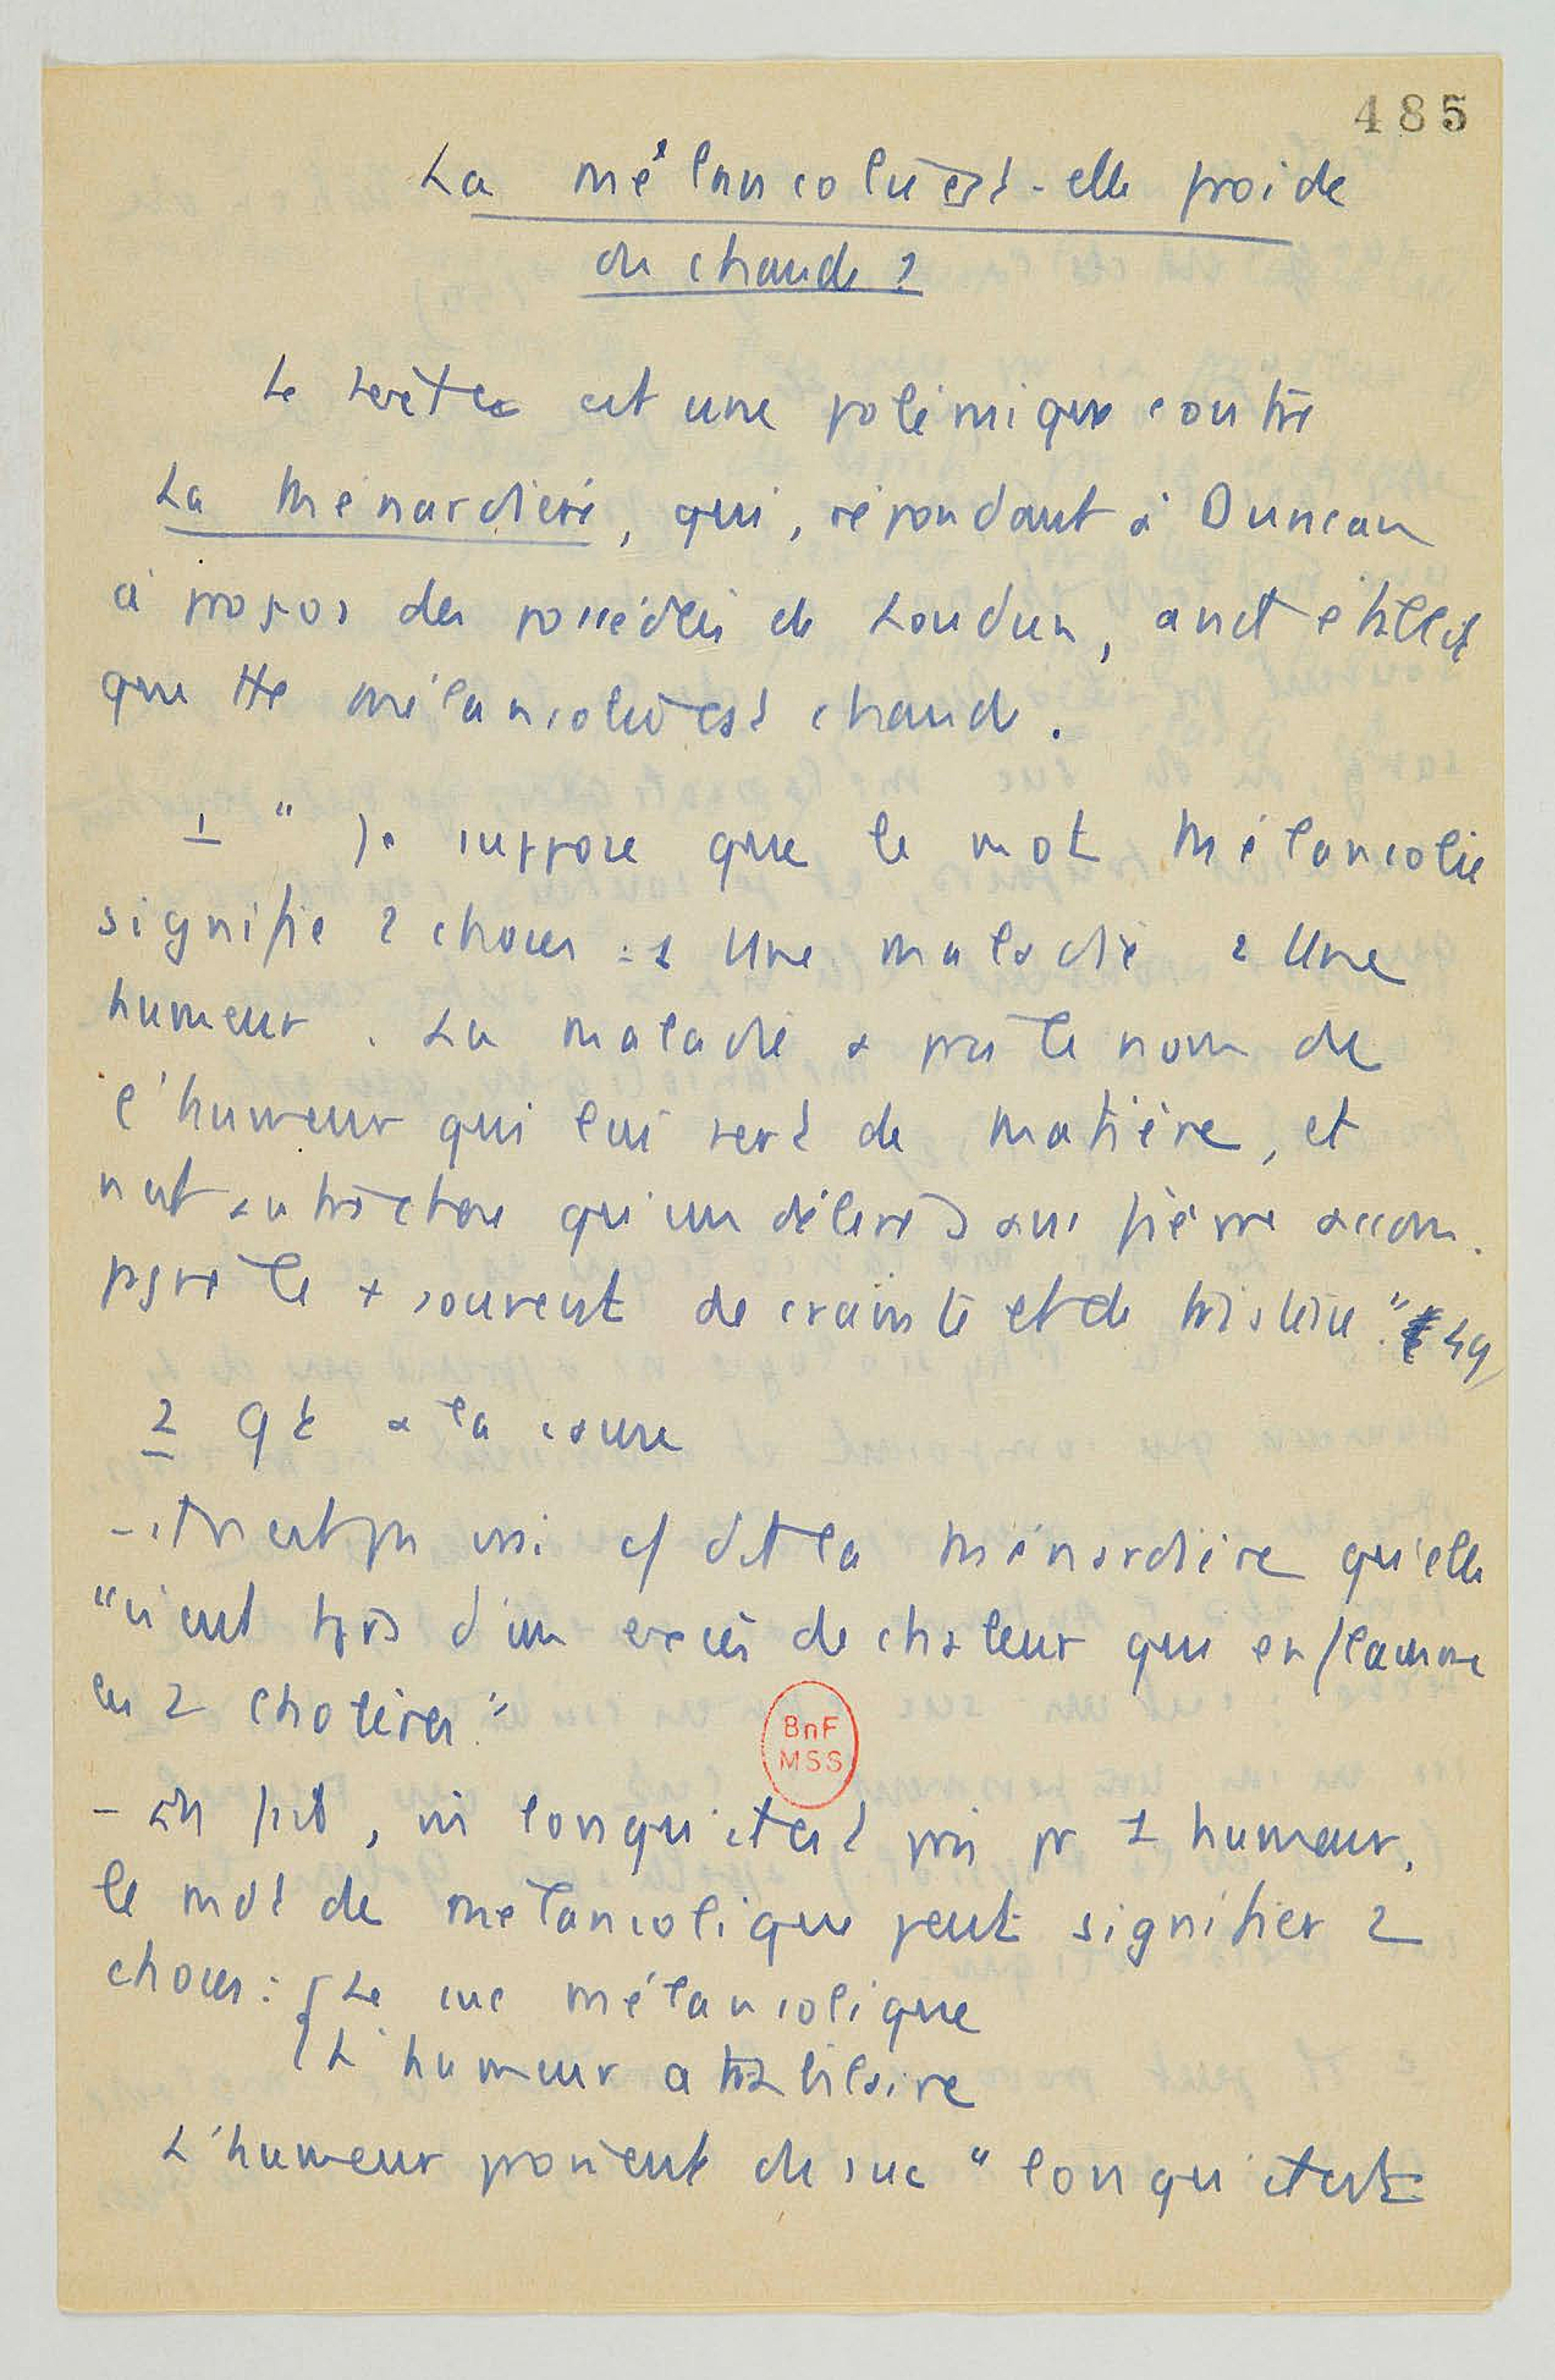 485
La mélancolie est-elle froide
ou chaude ?
Le texte est une polémique contre
La Ménardière, qui, répondant à Duncan
à propos des possédées de Loudun, avait établi
que tte mélancolie est chaude.
1 " Je suppose que le mot Mélancolie
signifie 2 choses : 1 Une maladie 2 Une
humeur. La maladie a pris le nom de
l'humeur qui lui sert de matière, et
n'est autre chose qu'un délire sans fièvre accom-
pagné le + souvent de crainte et de tristesse". 49
2 Qt à la cause
- il n'est pas vrai c/ dit la Ménardière qu'elle
"vient tjrs d'un excès de chaleur qui enflamme
les 2 cholères"
- En fait, lorsqu'il est pris pr 1 humeur,
le mot de mélancolique peut signifier 2
choses : { Le suc mélancolique
{ L'humeur atrabilaire
BnF
MSS
L'humeur provient du suc " lorsqu'il est